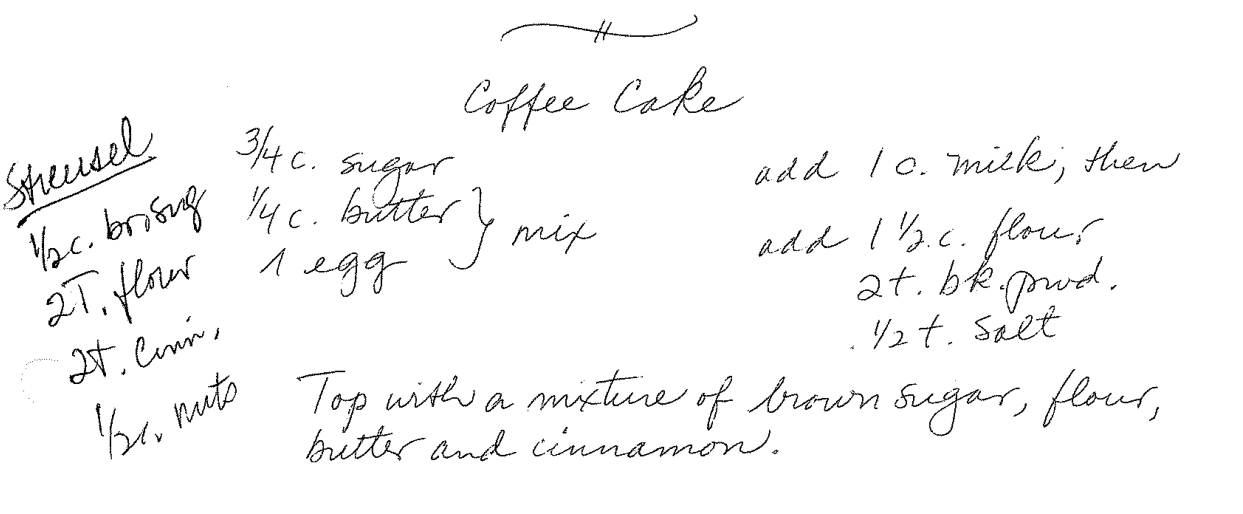 Coffee Cake
Streusel
1/2 c. br. sug
2T. flour
2t. Cinn.
1/2 c. nuts
3/4 c. sugar
1/4 c. butter } mix
1 egg
add 1 c. milk, then
add 1 1/2 c. flour
2t. bk. pwd.
1/2 t. salt
Top with a mixture of brown sugar, flour,
butter and cinnamon.